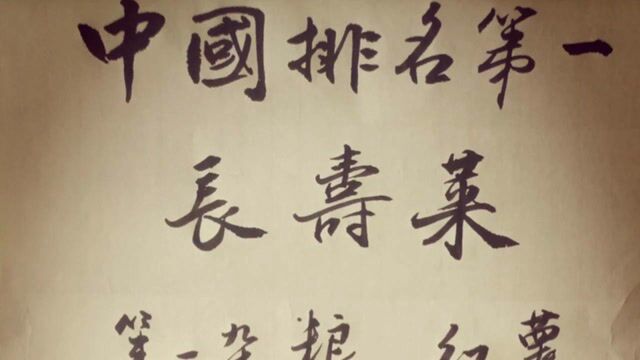 中國排名第一
長壽菜
第一杂粮 红薯